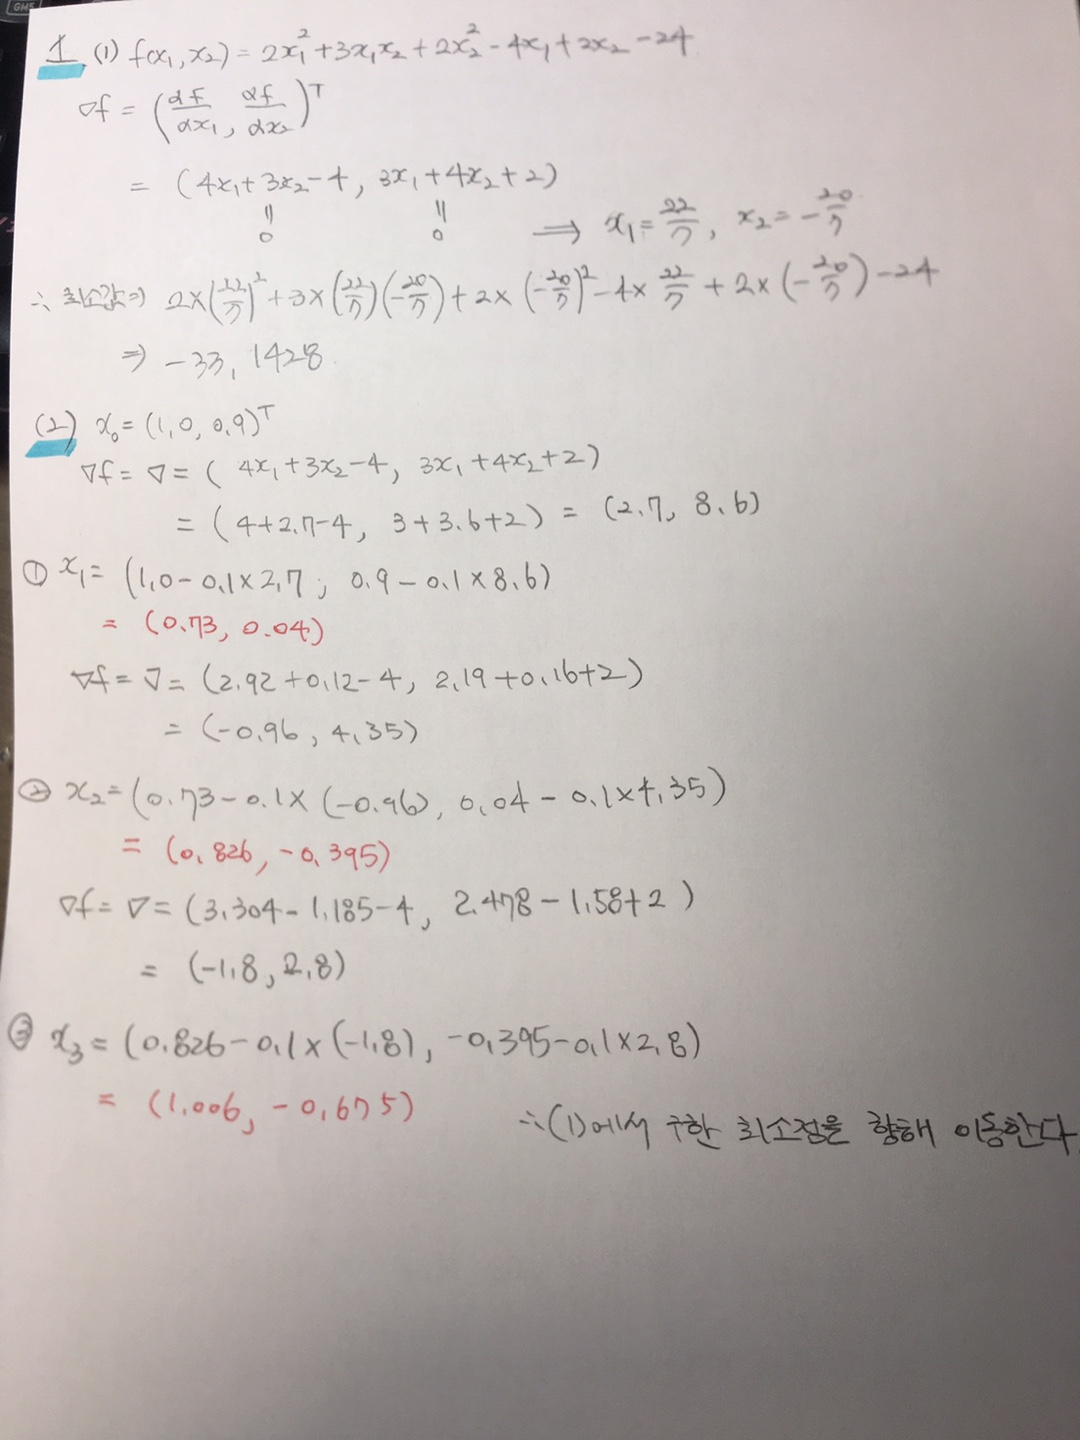 1. (1) f(x₁, x₂) = 2x₁² + 3x₁x₂ + 2x₂² - 4x₁ + 2x₂ - 24
∇f = (df/dx₁, df/dx₂)ᵀ
= (4x₁ + 3x₂ - 4, 3x₁ + 4x₂ + 2)
‖ ‖
0 0 ⟹ x₁ = 22/7, x₂ = -20/7
∴ 최소값 ⇒ 2×(22/7)² + 3×(22/7)(-20/7) + 2×(-20/7)² - 4×22/7 + 2×(-20/7) - 24
⇒ -33.1428
(2) x₀ = (1.0, 0.9)ᵀ
∇f = ∇ = (4x₁ + 3x₂ - 4, 3x₁ + 4x₂ + 2)
= (4 + 2.7 - 4, 3 + 3.6 + 2) = (2.7, 8.6)
① x₁ = (1.0 - 0.1×2.7, 0.9 - 0.1×8.6)
= (0.73, 0.04)
∇f = ∇ = (2.92 + 0.12 - 4, 2.19 + 0.16 + 2)
= (-0.96, 4.35)
② x₂ = (0.73 - 0.1×(-0.96), 0.04 - 0.1×4.35)
= (0.826, -0.395)
∇f = ∇ = (3.304 - 1.185 - 4, 2.478 - 1.58 + 2)
= (-1.8, 2.8)
③ x₃ = (0.826 - 0.1×(-1.8), -0.395 - 0.1×2.8)
= (1.006, -0.675)
∴ (1)에서 구한 최소점을 향해 이동한다.